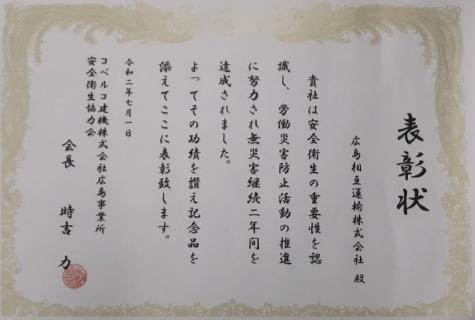 表彰状
広島相互運輸株式会社 殿
貴社は安全衛生の重要性を認
識し、労働災害防止活動の推進
に努力され無災害継続二年間を
達成されました。
よってその功績を讃え記念品を
添えてここに表彰致します。
令和二年七月一日
コベルコ建機株式会社広島事業所
安全衛生協力会
会長 時吉 力